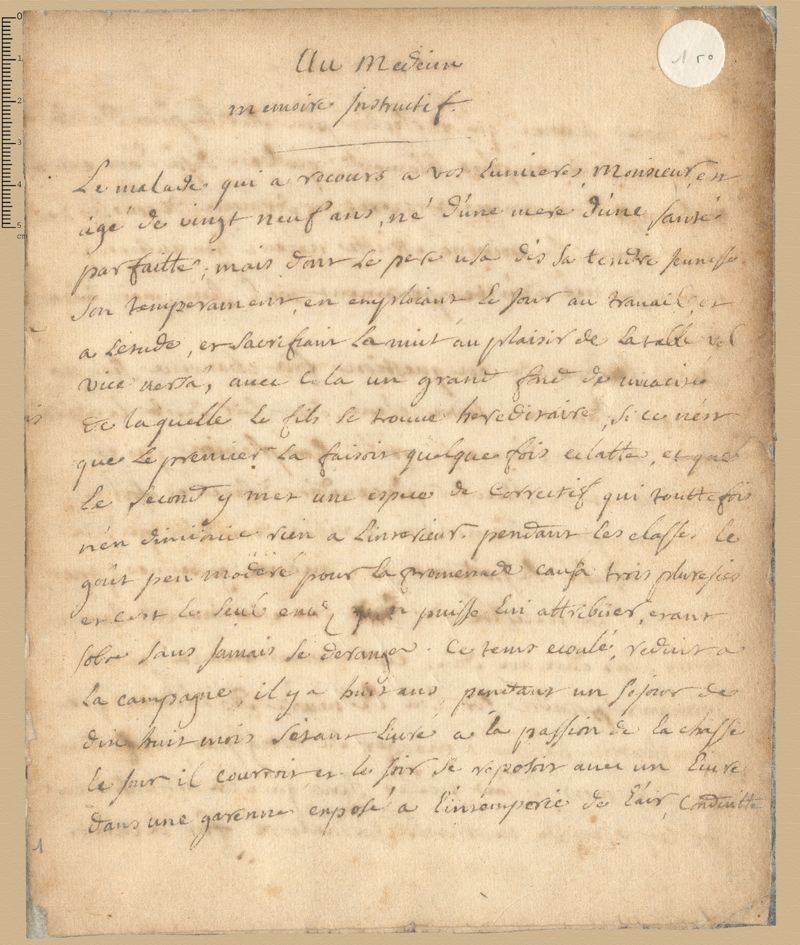 150
Un Medecin
memoire Instructif.
Le malade qui a recours a vos Lumieres, Monsieur, est
âgé de vingt neuf ans, né d'une mere d'une santé
parfaitte; mais dont le pere usa dès sa tendre Jeunesse
son temperament, en emploiant le Jour au travail, et
a L'etude, et sacrifiant La nuit au plaisir de La table vel
vice versâ, avec cela un grand fond de vivacité
de laquelle le fils se trouve hereditaire, si ce n'est
que le premier la faisoit quelque fois eclatter, et que
le second y met une espece de correctif qui touttefois
n'en diminüe rien a L'interieur. pendant les classes le
goût peu modéré pour la promenade causa trois pluresies
et c'est le seul puisse lui attribüer, etant
sobre sans Jamais se deranger. Ce tems ecoulé, reduit a
La campagne, il y a huit ans, pendant un sejour de
dix huit mois s'etant Livré a la passion de la chasse
le Jour il couroit et le soir se reposoit avec un Livre
dans une garenne exposé a L'intemperie de L'air, Conduitte
1